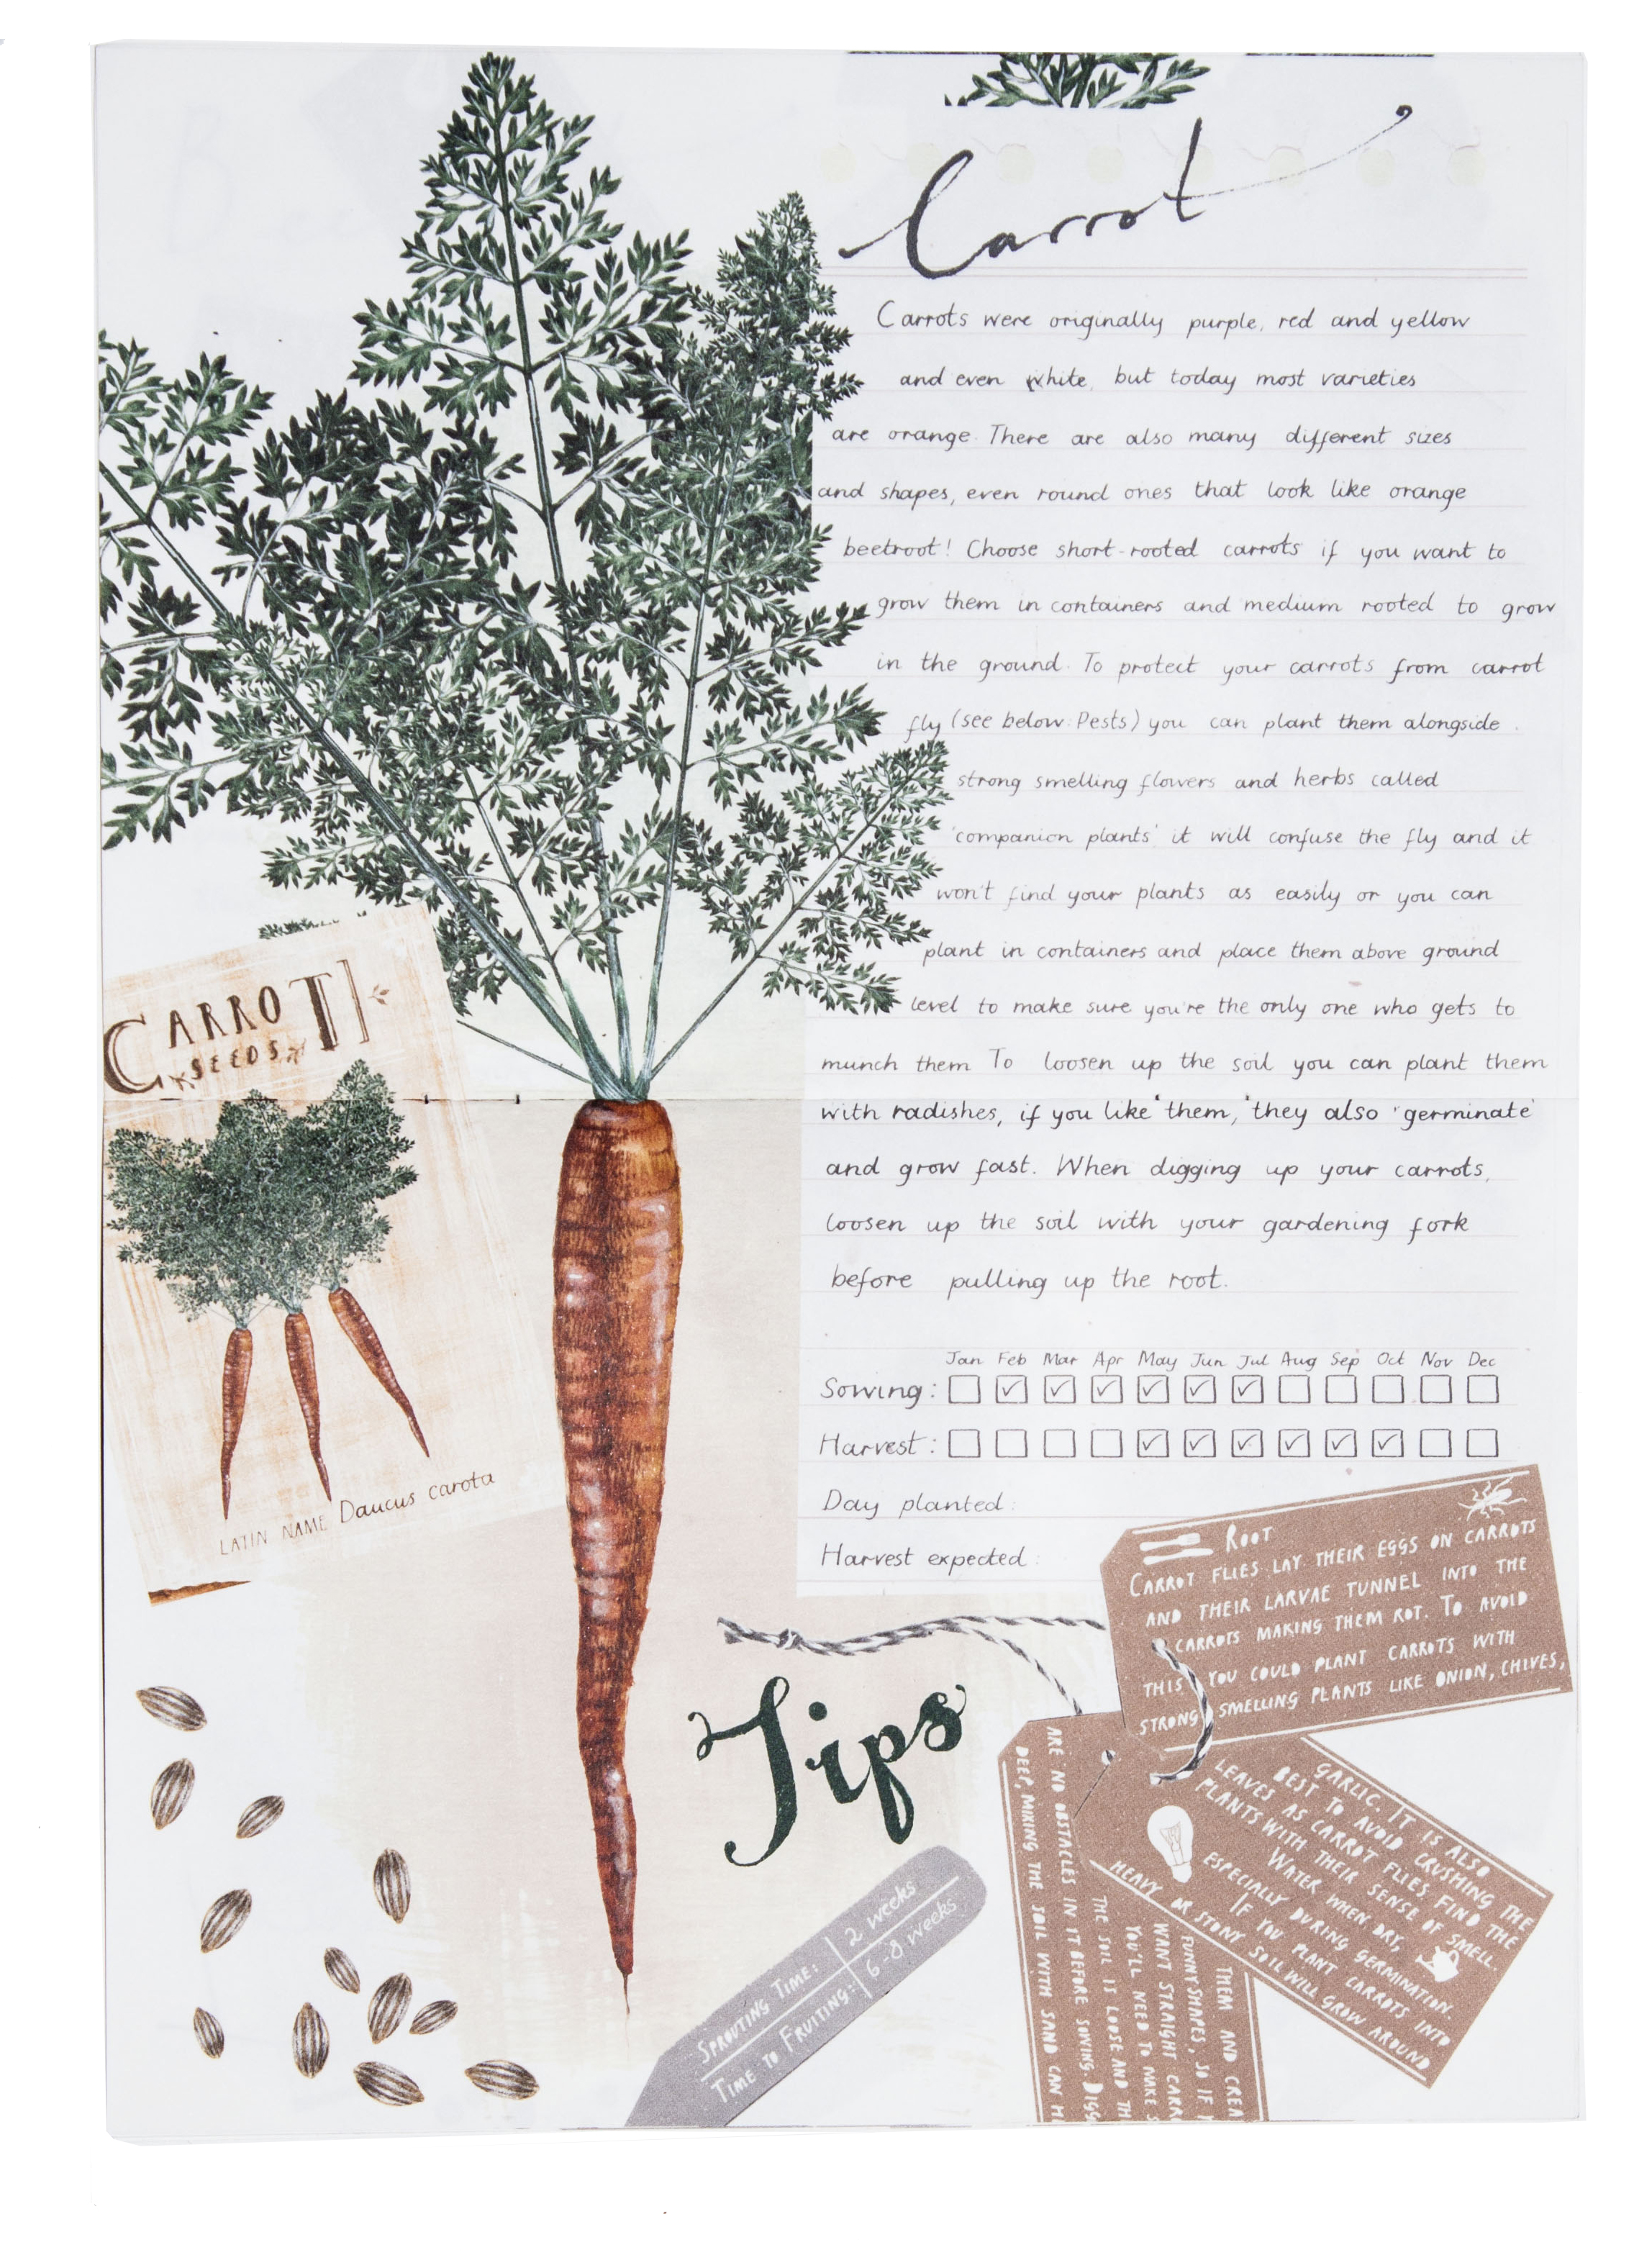 Carrot
Carrots were originally purple, red and yellow
and even white, but today most varieties
are orange. There are also many different sizes
and shapes, even round ones that look like orange
beetroot! Choose short-rooted carrots if you want to
grow them in containers and medium rooted to grow
in the ground. To protect your carrots from carrot
fly (see below: Pests) you can plant them alongside
strong smelling flowers and herbs called
'companion plants' it will confuse the fly and it
won't find your plants as easily or you can
plant in containers and place them above ground
level to make sure you're the only one who gets to
munch them To loosen up the soil you can plant them
with radishes, if you like them, they also germinate
and grow fast. When digging up your carrots,
loosen up the soil with your gardening fork
before pulling up the root.
Jan Feb Mar Apr May Jun Jul Aug Sep Oct Nov Dec
Sowing:
Harvest:
Day planted:
Harvest expected:
CARROT
SEEDS
LATIN NAME Daucus carota
Tips
SPROUTING TIME: 2 weeks
TIME TO FRUITING: 6-8 weeks
ROOT
CARROT FLIES LAY THEIR EGGS ON CARROTS
AND THEIR LARVAE TUNNEL INTO THE
CARROTS MAKING THEM ROT. TO AVOID
THIS YOU COULD PLANT CARROTS WITH
STRONG SMELLING PLANTS LIKE ONION, CHIVES,
GARLIC. IT IS ALSO
BEST TO AVOID CRUSHING THE
LEAVES AS CARROT FLIES FIND THE
PLANTS WITH THEIR SENSE OF SMELL.
WATER WHEN DRY,
ESPECIALLY DURING GERMINATION.
IF YOU PLANT CARROTS INTO
HEAVY OR STONY SOIL WILL GROW AROUND
THEM AND CREA
FUNNY SHAPES, SO IF
WANT STRAIGHT CARR
YOU'LL NEED TO MAKE S
THE SOIL IS LOOSE AND TH
ARE NO OBSTACLES IN IT BEFORE SOWING. DIGG
DEEP, MIXING THE SOIL WITH SAND CAN H